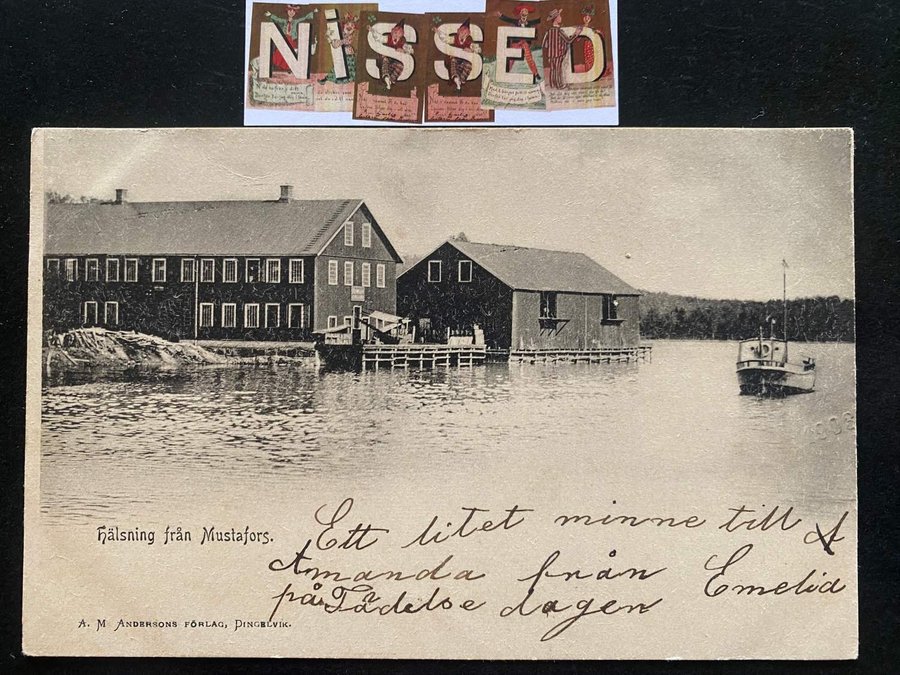 NiSSED
Hälsning från Mustafors.
Ett litet minne till A
Amanda från Emelia
på Födelse dagen
A. M ANDERSONS FÖRLAG, DINGELVIK.